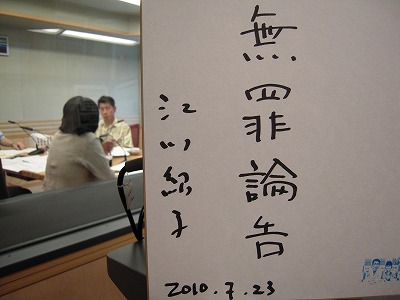 無罪論告
江川紹子
2010.7.23